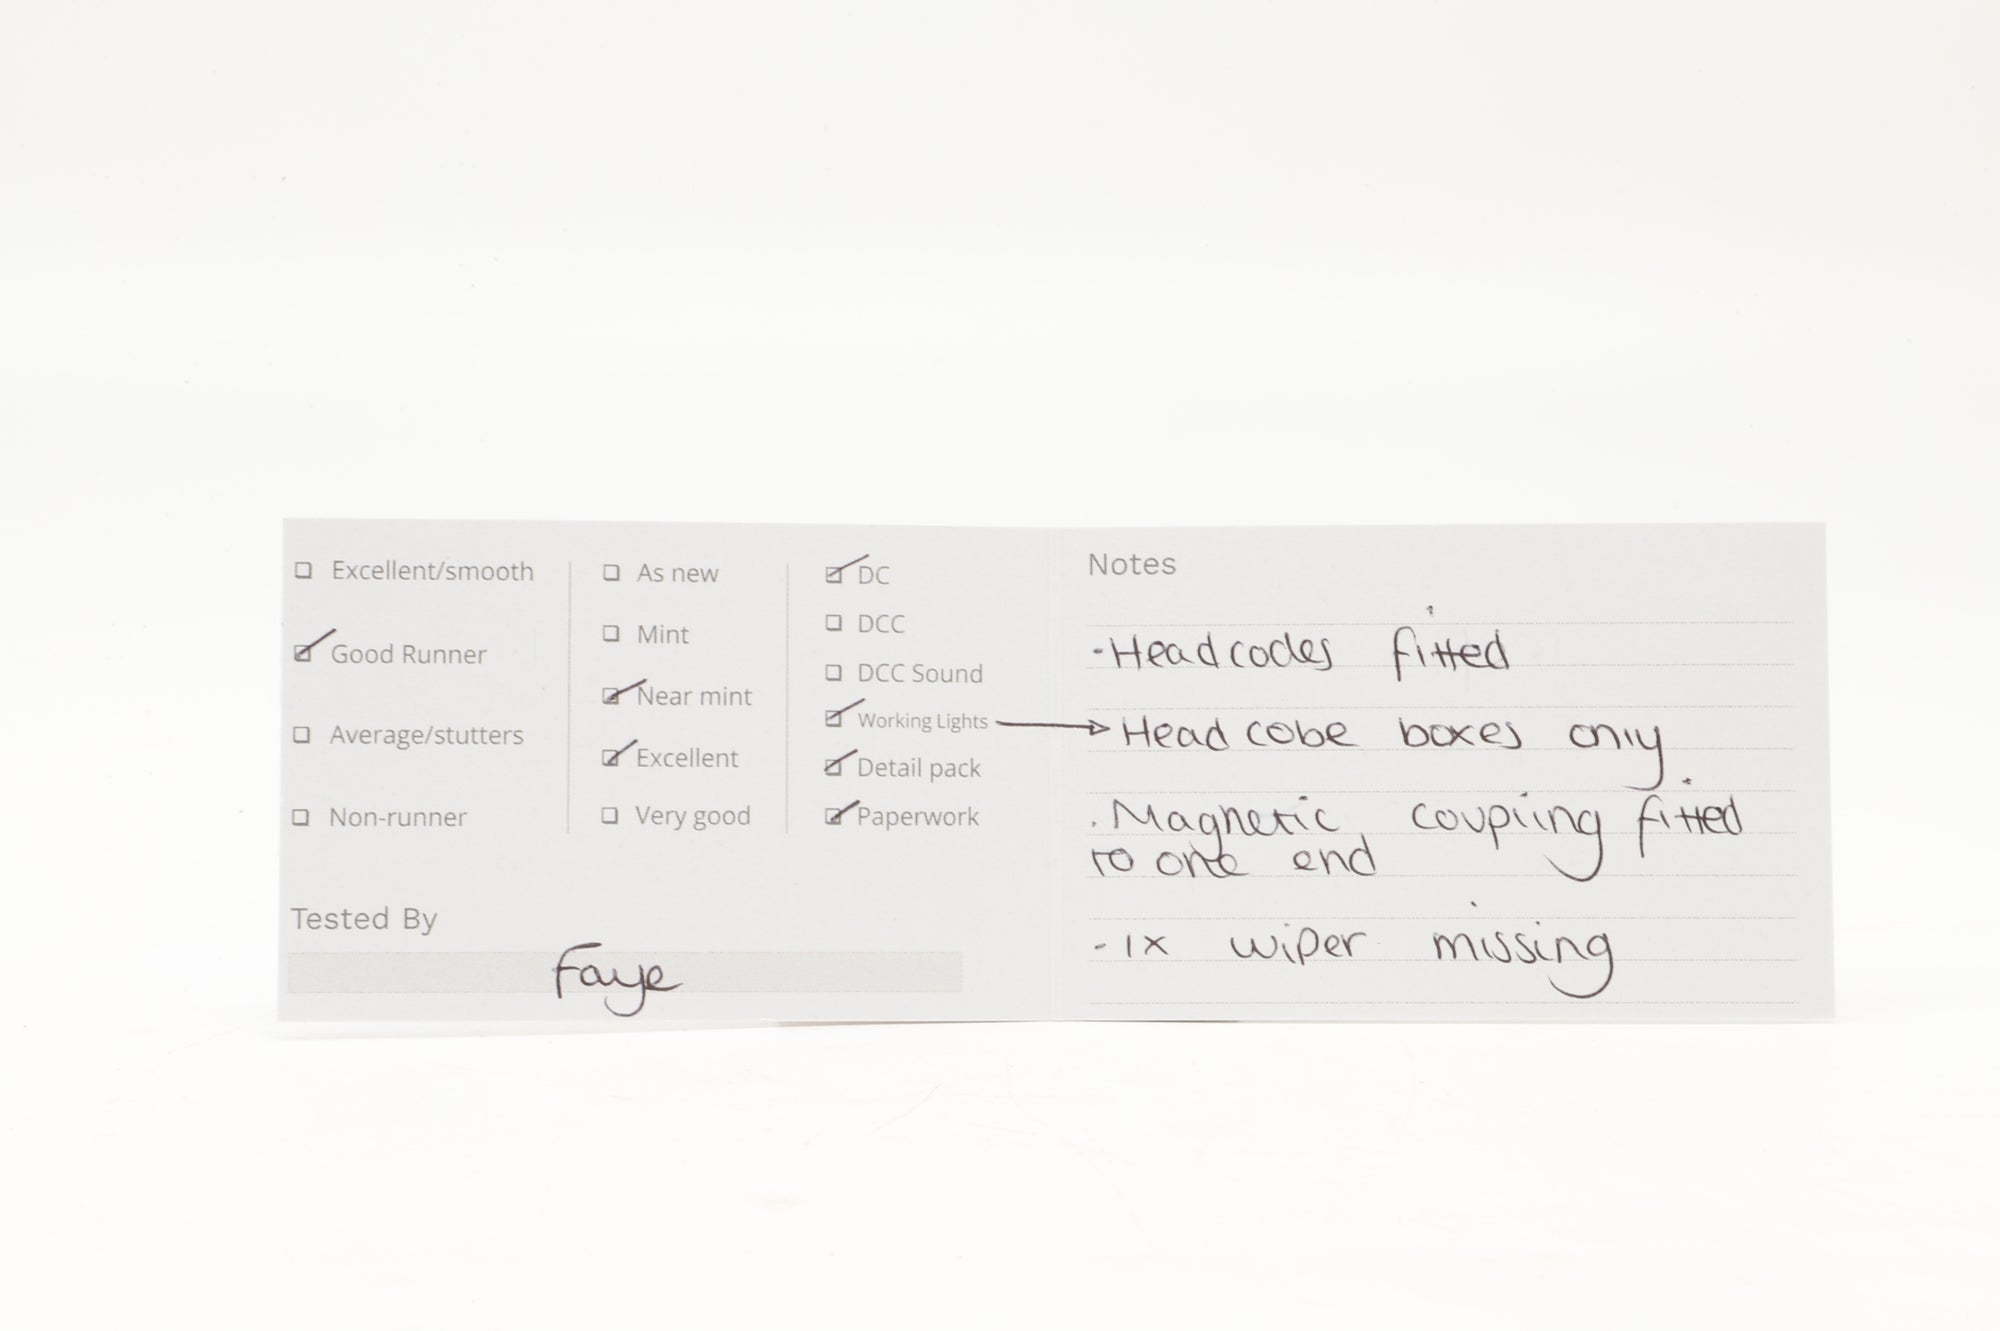 Excellent/smooth
Good Runner
Average/stutters
Non-runner
As new
Mint
Near mint
Excellent
Very good
DC
DCC
DCC Sound
Working Lights
Detail pack
Paperwork
Tested By
Faye
Notes
- Headcodes fitted
Head cobe boxes only
. Magnetic coupling fitted
to one end
- 1x wiper missing